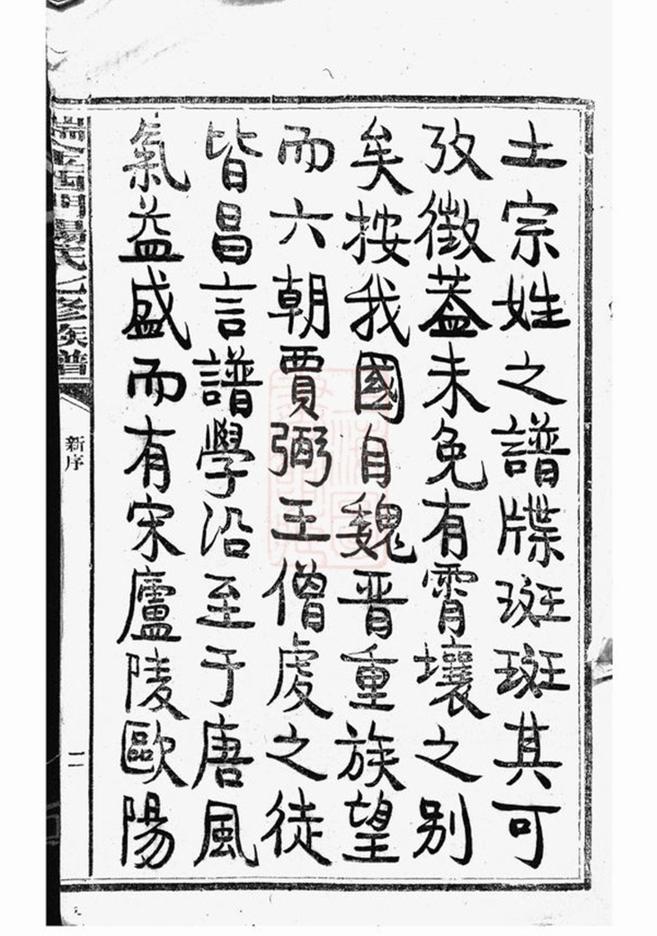 土宗姓之譜牒斑斑其可
攷徵蓋未免有霄壤之别
矣按我國自魏晋重族望
而六朝賈弼王僧虔之徒
皆昌言譜學沿至于唐風
氣益盛而有宋廬陵歐陽
氏七修族譜
新序
二